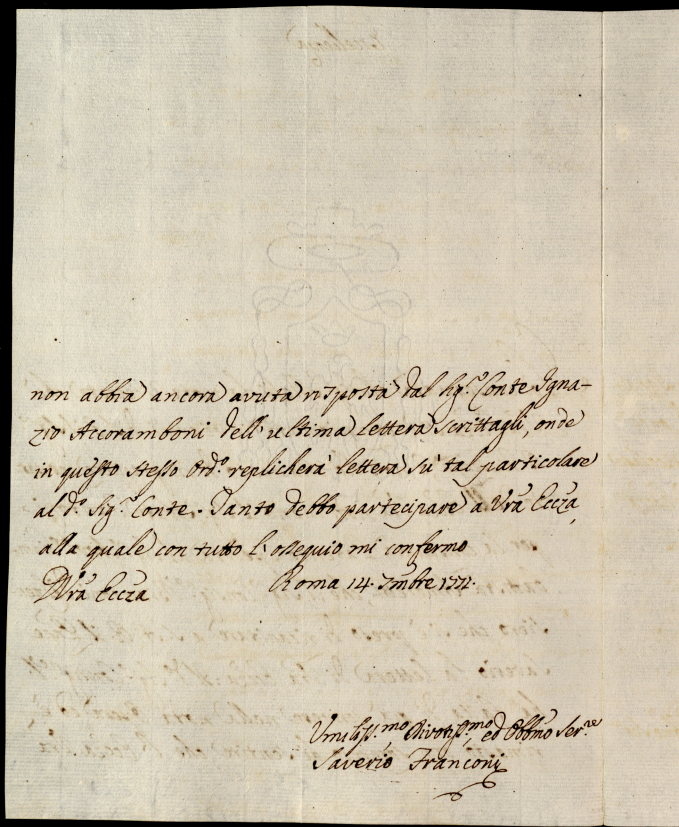 non abbia ancora avuta risposta dal Sig.r Conte Igna-
zio Accoramboni dell'ultima lettera scrittagli, onde
in questo stesso Ord.o replicherà lettera sù tal particolare
al d.o Sig.r Conte. Tanto debbo partecipare a Vrã Eccza,
alla quale con tutto l'ossequio mi confermo
DVrã Eccza Roma 14. 7mbre
Umiliss.mo Divotiss.mo, ed Obbmo Ser.re
Saverio Franconi